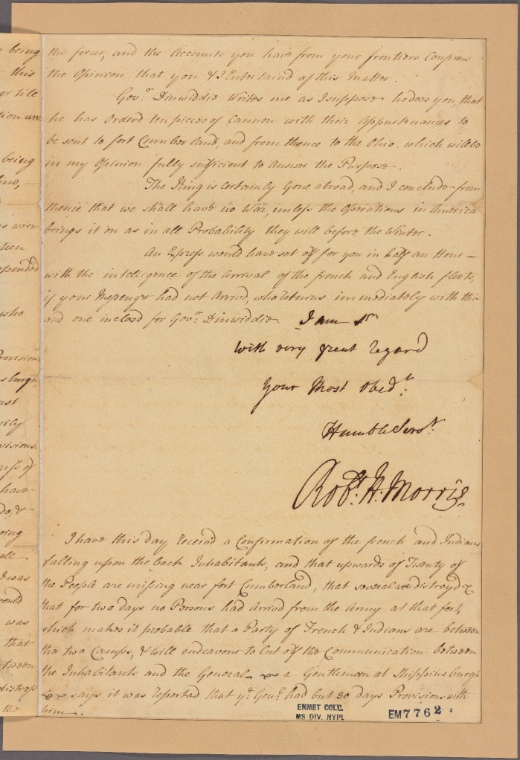 the force, and the Accounts you have from your frontiers Confirm
the Opinion that you & I Entertaind of this matter.
Govr. Dinwiddie Writes me as I suppose he does you, that
he has Ordered ten pieces of Cannon with their appurtenances to
be sent to fort Cumberland, and from thence to the Ohio, which will be
in my Opinion fully sufficient to answer the Purpose.
The King is certainly Gone abroad, and I conclude from
thence that we shall have no War, unless the Operations in America
brings it on as in all Probability they will before the Winter.
An Express would have set off for you in half an Hour
with the intelligence of the arrival of the french and English fleets,
if your Messenger had not arrivd, who returns immediately with this
and one inclosd for Govr. Dinwiddie. I am Sr
With very great regard
Your Most Obedt.
Humble Servt.
Robt. H. Morris
I have this day receivd a Confirmation of the french and Indians
falling upon the back Inhabitants, and that upwards of Twenty of
the People are missing near fort Cumberland, that several are distroyd &
that for two days no Persons had arrivd from the Army at that fort,
which makes it probable that a Party of French & Indians are between
the two Camps, & will endeavour to Cut off the Communication between
the Inhabitants and the General & a Gentleman at Shippensburgh
says it was reported that ye. Genl. had but 30 days Provisions with
him
EMMET COLL.
MS DIV. NYPL
EM7762
being
this
or
being
who
Provision
was
that